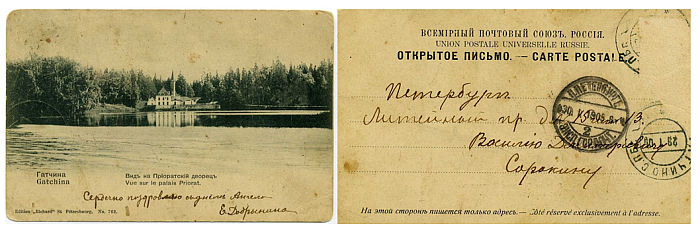 Гатчина
Gatchina
Видъ на Пріоратскій дворецъ
Vue sur le palais Priorat.
Сердечно поздравляю съ днемъ Ангела
Е. Добрынина
Edition „Richard" St. Pétersbourg. No. 762.
ВСЕМІРНЫЙ ПОЧТОВЫЙ СОЮЗЪ. РОССІЯ.
UNION POSTALE UNIVERSELLE RUSSIE.
ОТКРЫТОЕ ПИСЬМО. — CARTE POSTALE
Петербургъ
Литейный пр. д.
Василію
Сорокину
С.ПЕТЕРБУРГЪ
1905
2
29 1 05
На этой сторонѣ пишется только адресъ. — Côté réservé exclusivement à l'adresse.